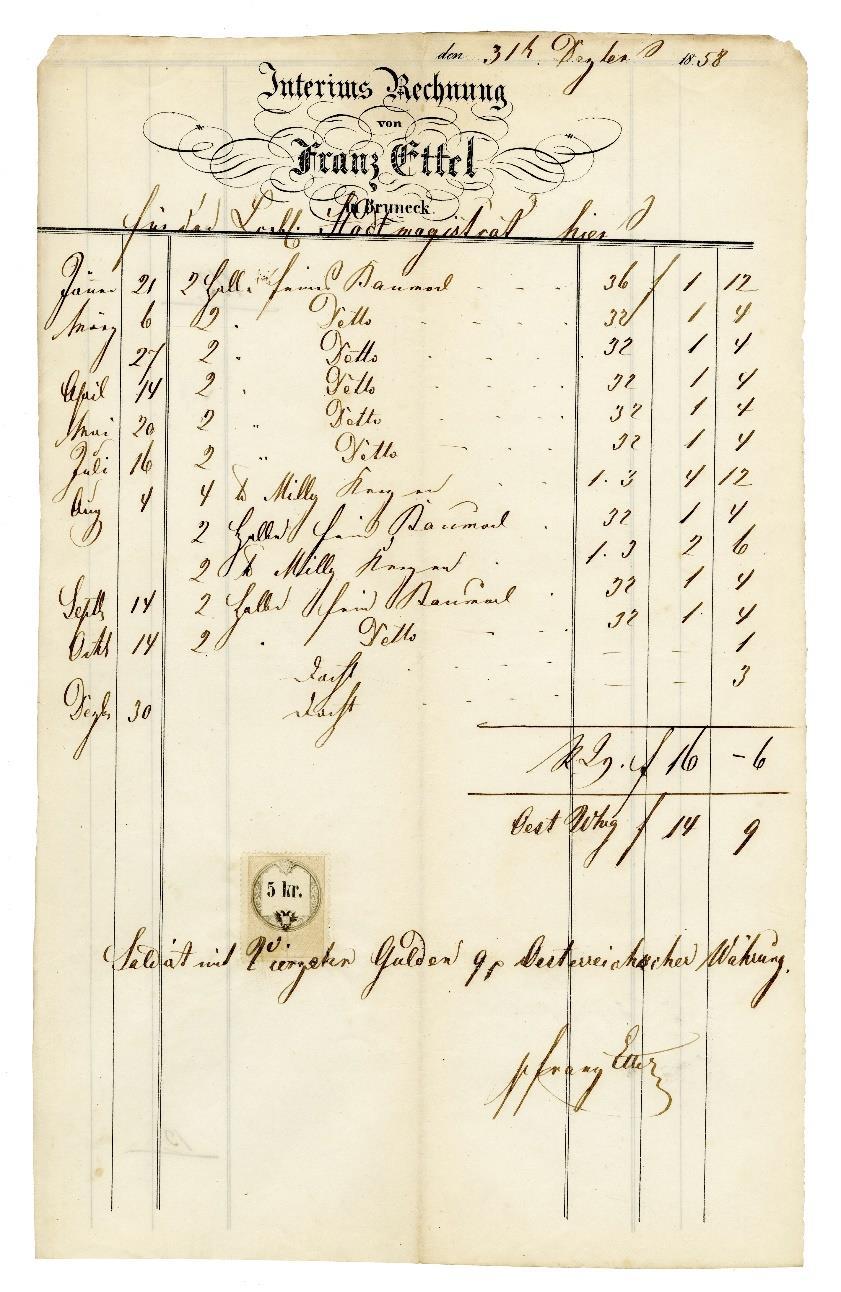 den 31t. Dezber 1858
Interims Rechnung
von
Franz Ettel
in Bruneck
für den Löbl. Stadtmagistrat hier
Jänner 21 2 Halbe feines Baumoel 36 f 1 12
März 6 2 " Detto 32 1 4
27 2 " Detto 32 1 4
April 14 2 " Detto 32 1 4
Mai 20 2 " Detto 32 1 4
Juli 16 2 " Detto 32 1 4
Aug 4 4 ℔ Milly Kerzen 1.3 4 12
2 Halbe fein Baumoel 32 1 4
2 ℔ Milly Kerzen 1.3 2 6
Septb 14 2 Halbe fein Baumoel 32 1 4
Octb 14 2 " Detto 32 1 4
Docht — — 1
Dezbr 30 Docht — — 3
f 16 – 6
Oest Whrg f 14 9
5 kr.
Saldirt mit Vierzehn Gulden 9 Oesterreichischer Währung.
Franz Ettel